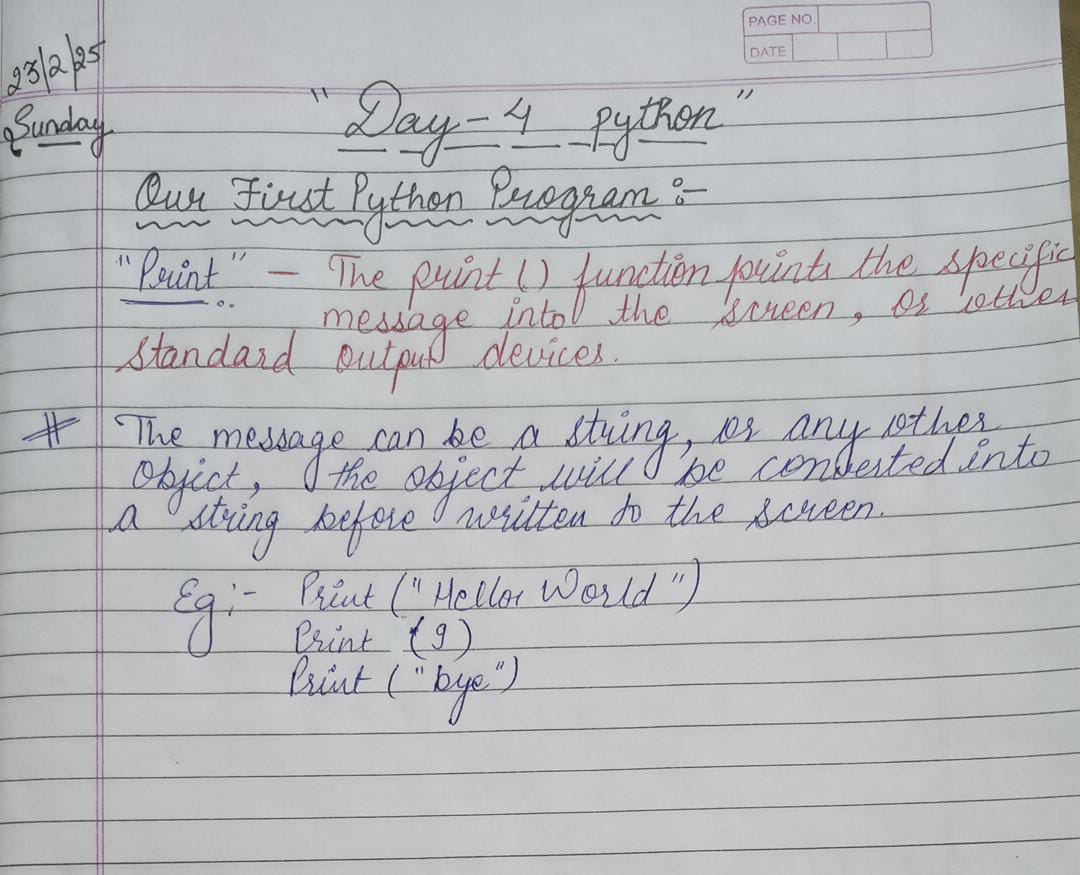 PAGE NO.
DATE
23/2/25
Sunday
"Day-4 python"
Our First Python Program :-
"Print" - The print () function prints the specific
message into the screen, or other
standard output devices.
# The message can be a string, or any other
Object, the object will be converted into
a string before written to the screen.
Eg:- Print ("Hello World")
Print (9)
Print ("bye")